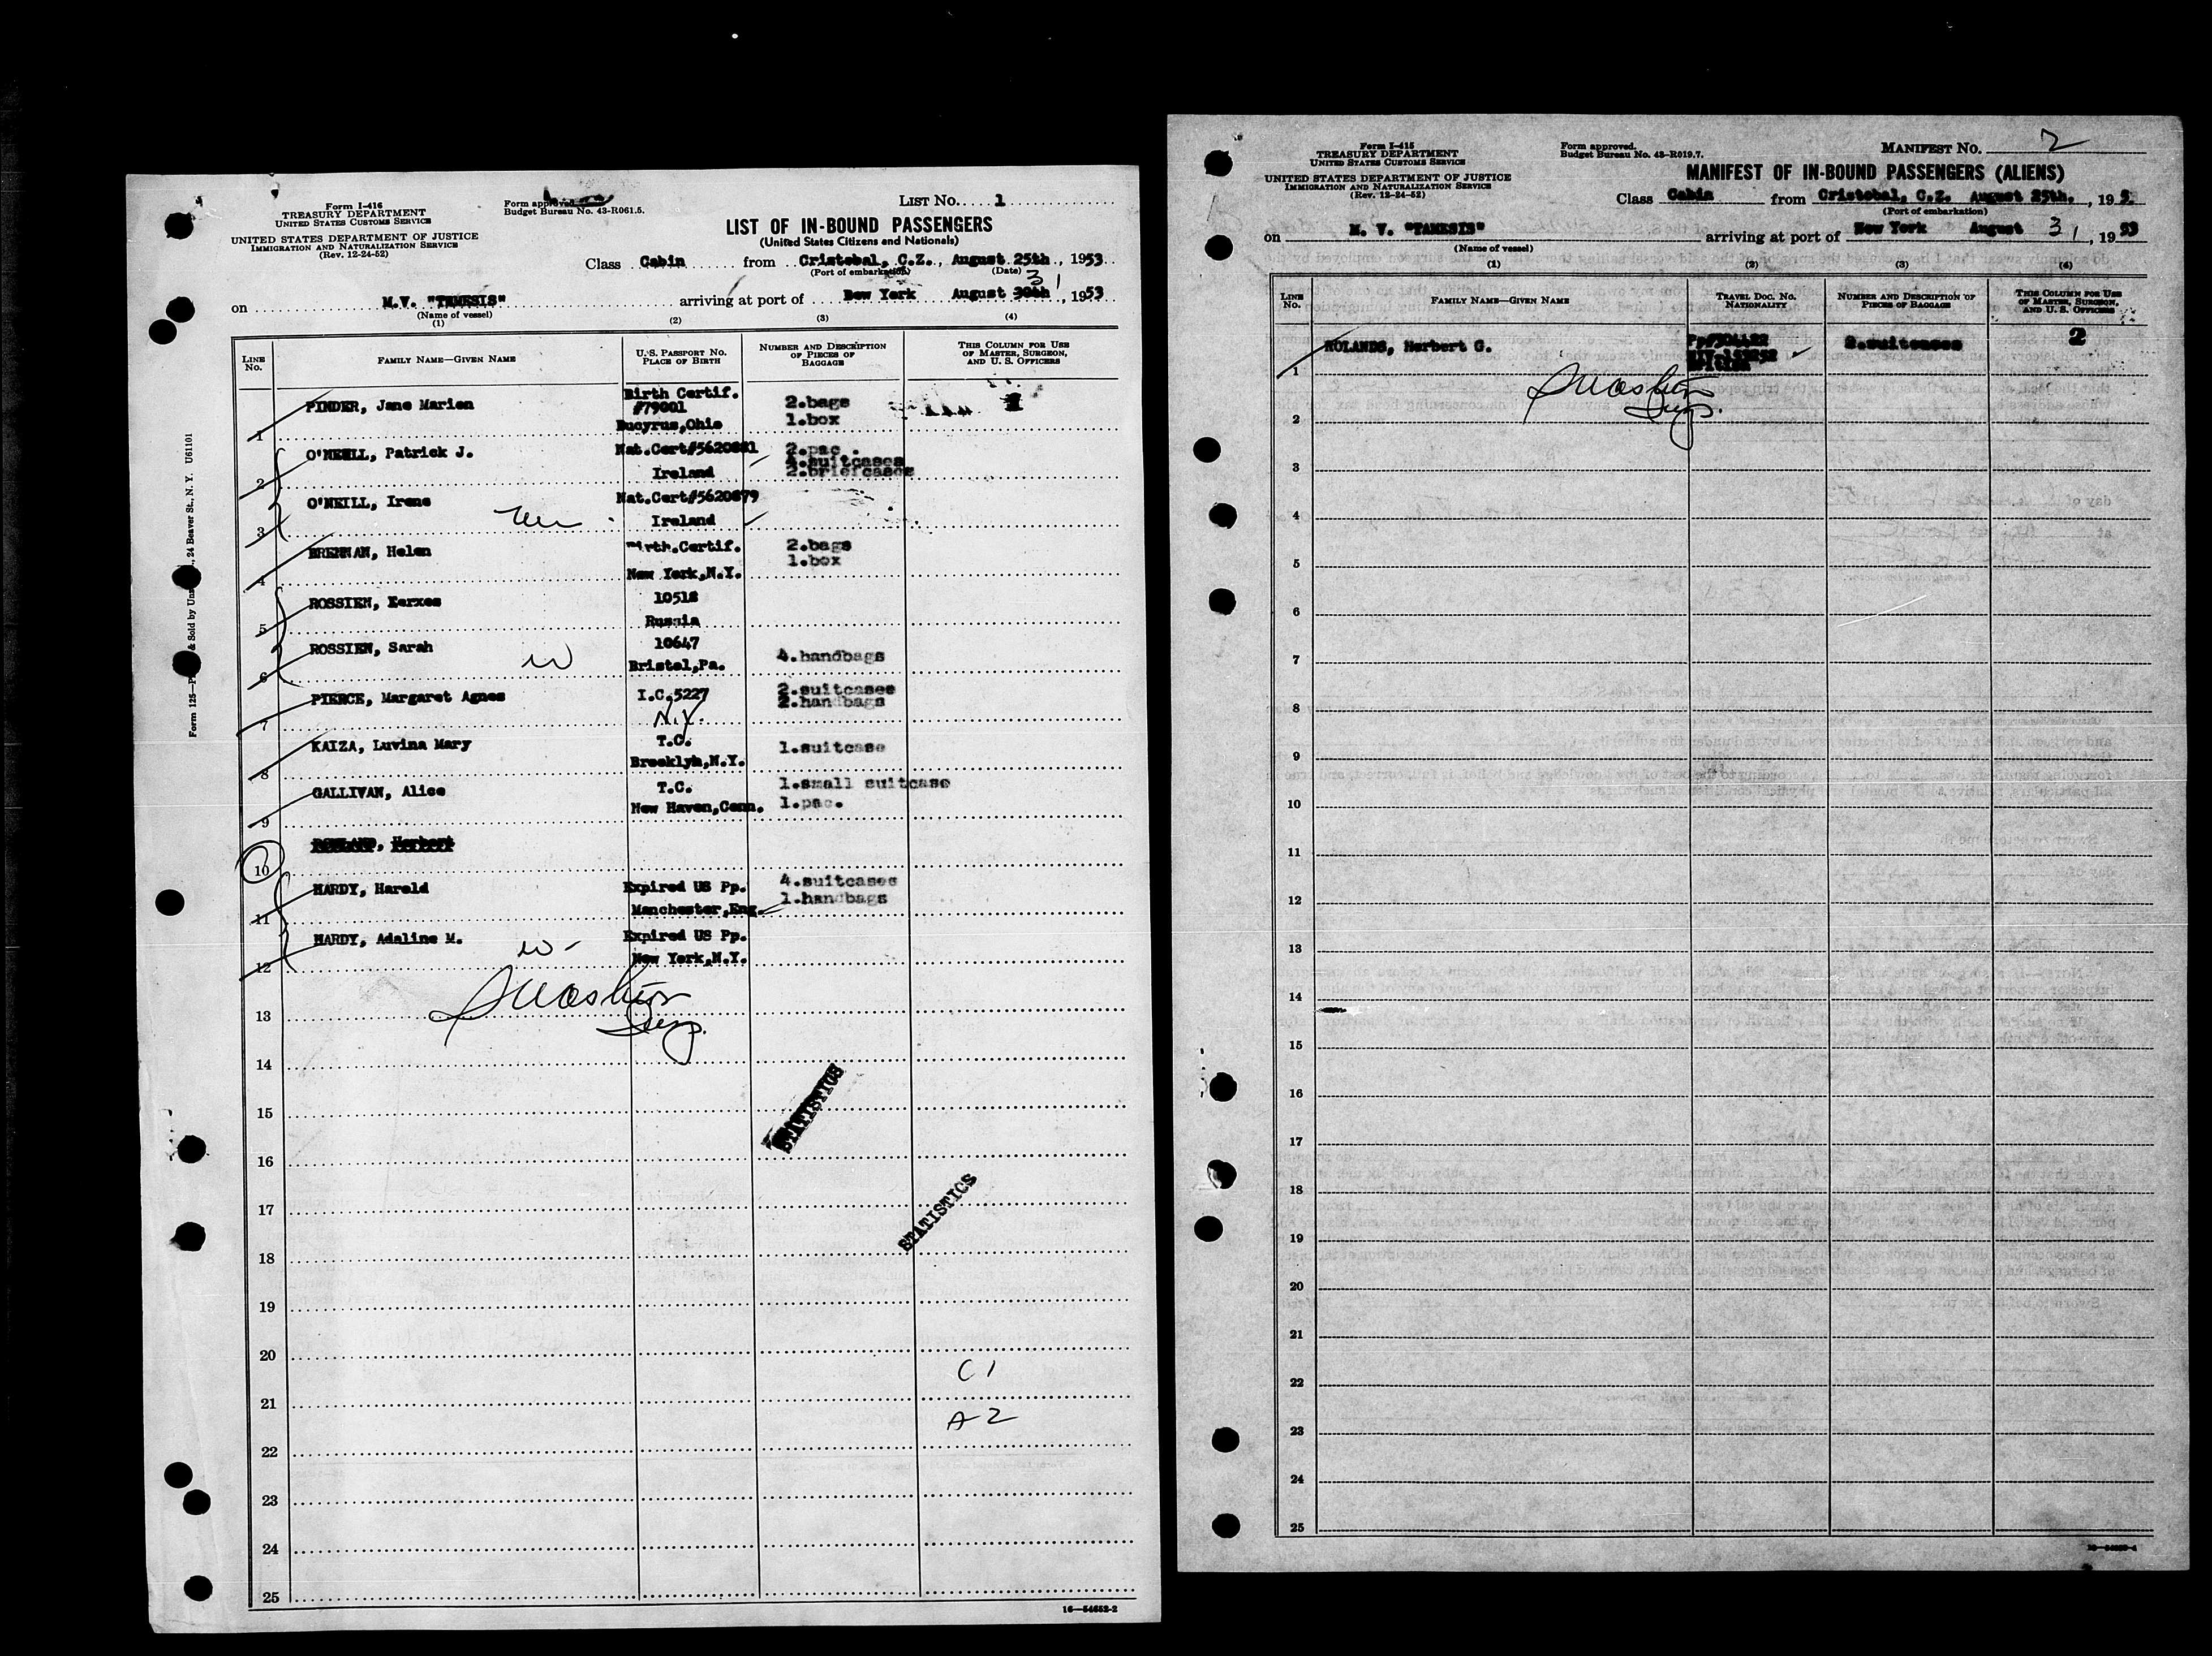 Form I-416
TREASURY DEPARTMENT
UNITED STATES CUSTOMS SERVICE
UNITED STATES DEPARTMENT OF JUSTICE
IMMIGRATION AND NATURALIZATION SERVICE
(Rev. 12-24-52)
Form approved.
Budget Bureau No. 43-R061.5.
LIST No. 1
LIST OF IN-BOUND PASSENGERS
(United States Citizens and Nationals)
Class Cabin from Cristobal, C.Z., August 25th, 1953
(Port of embarkation) (Date)
on M.V. "TAMESIS" arriving at port of New York August 30th 31, 1953
(Name of vessel)
(1) (2) (3) (4)
LINE No. FAMILY NAME—GIVEN NAME U.S. PASSPORT NO. PLACE OF BIRTH NUMBER AND DESCRIPTION OF PIECES OF BAGGAGE THIS COLUMN FOR USE OF MASTER, SURGEON, AND U. S. OFFICERS
1 PINDER, Jane Marion Birth Certif. #79001 Bucyrus,Ohio 2.bags 1.box 1
2 O'NEILL, Patrick J. Nat.Cert#5620881 Ireland 2.pac. 4.suitcases 2.briefcases
3 O'NEILL, Irene Nat.Cert#5620879 Ireland
4 BRENNAN, Helen Birth.Certif. New York,N.Y. 2.bags 1.box
5 ROSSIEN, Xerxes 10518 Russia
6 ROSSIEN, Sarah W 10647 Bristol,Pa. 4.handbags
7 PIERCE, Margaret Agnes I.C.5227 N.Y. 2.suitcases 2.handbags
8 KAIZA, Luvina Mary T.C. Brooklyn,N.Y. 1.suitcase
9 GALLIVAN, Alice T.C. New Haven,Conn. 1.small suitcase 1.pac.
10 ROWLAND, Herbert
11 HARDY, Harold Expired US Pp. Manchester,Eng. 4.suitcases 1.handbags
12 HARDY, Adaline M. W- Expired US Pp. New York,N.Y.
13
14
15
16
17
18
19
20
21
22
23
24
25
STATISTICS
STATISTICS
C 1
A 2
16—54652-2
24 Beaver St., N. Y. U61101
Form I-415
TREASURY DEPARTMENT
UNITED STATES CUSTOMS SERVICE
UNITED STATES DEPARTMENT OF JUSTICE
IMMIGRATION AND NATURALIZATION SERVICE
(Rev. 12-24-52)
Form approved.
Budget Bureau No. 43-R019.7.
MANIFEST No. 2
MANIFEST OF IN-BOUND PASSENGERS (ALIENS)
Class Cabin from Cristobal, C.Z. August 25th., 195
(Port of embarkation)
on M. V. "TAMESIS" arriving at port of New York August 31, 1953
(Name of vessel)
(1) (2) (3) (4)
LINE No. FAMILY NAME—GIVEN NAME TRAVEL DOC. NO. NATIONALITY NUMBER AND DESCRIPTION OF PIECES OF BAGGAGE THIS COLUMN FOR USE OF MASTER, SURGEON, AND U. S. OFFICERS
1 ROLANDS, Herbert G. British 2.suitcases 2
2
3
4
5
6
7
8
9
10
11
12
13
14
15
16
17
18
19
20
21
22
23
24
25